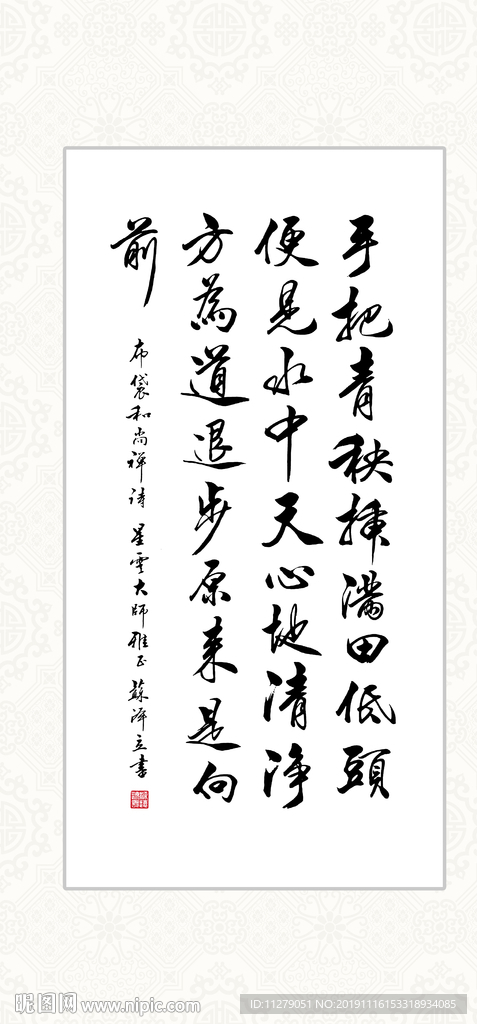 手把青秧插滿田低頭
便見水中天心地清淨
方為道退步原來是向
前
布袋和尚禅诗 星雲大師雅正 蘇澤立書
昵图网 www.nipic.com
ID:11279051 NO:20191116153318934085